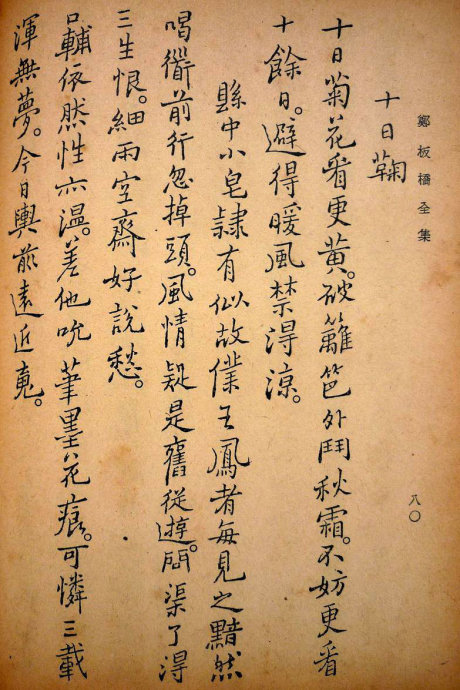 鄭板橋全集
八〇
十日鞠
十日菊花看更黃。破籬笆外鬥秋霜。不妨更看
十餘日。避得暖風禁得涼。
縣中小皂隸有似故僕王鳳者每見之黯然
喝衟前行忽掉頭。風情疑是舊從遊。問渠了得
三生恨。細雨空齋好說愁。
口輔依然性亦温。差他吮筆墨花痕。可憐三載
渾無夢。今日輿前遠近魂。